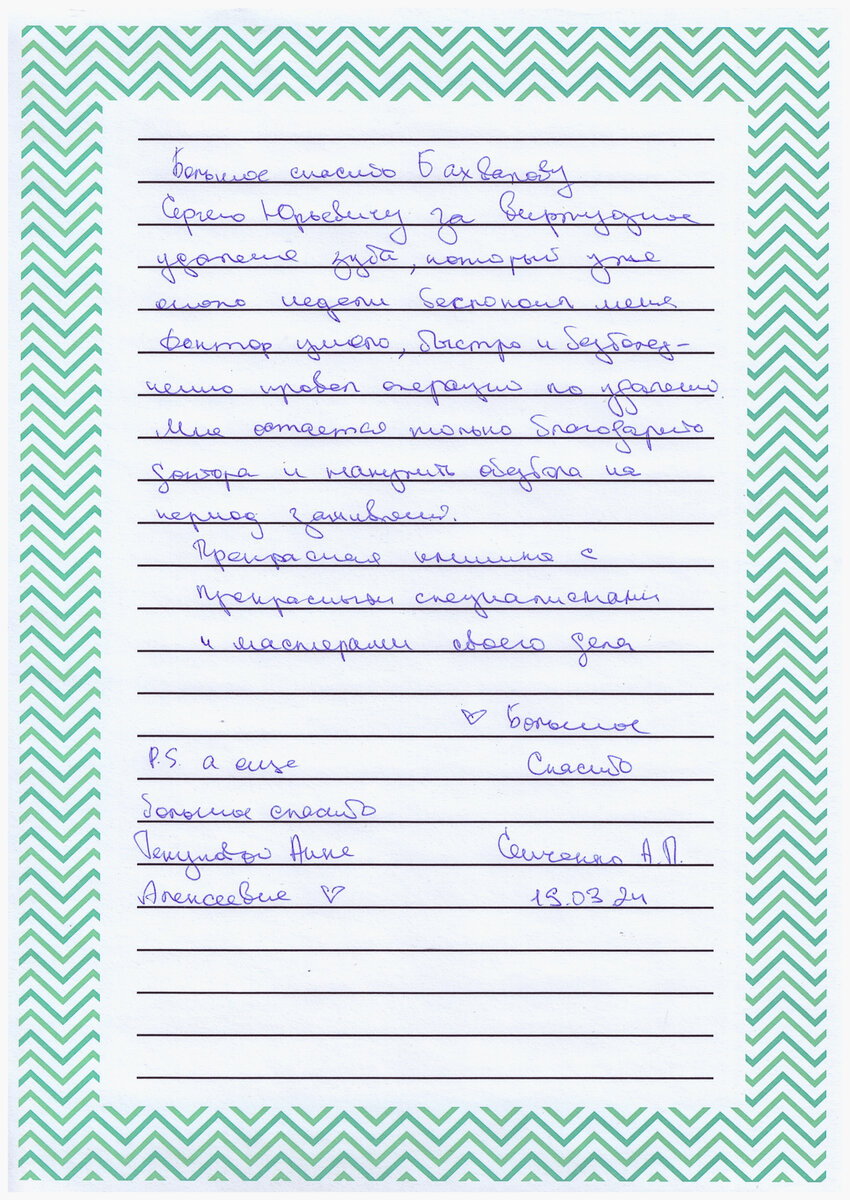 Большое спасибо Бахвалову
Сергею Юрьевичу за виртуозное
удаление зуба, который уже
около недели беспокоил меня
Доктор умело, быстро и безболез-
ненно провел операцию по удалению
Мне остается только благодарить
доктора и
период заживлений.
Прекрасная клиника с
прекрасными специалистами
и мастерами своего дела
♡ Большое
P.S. а еще Спасибо
большое спасибо
Анне Сенченко А.П.
Алексеевне ♡ 19.03 24